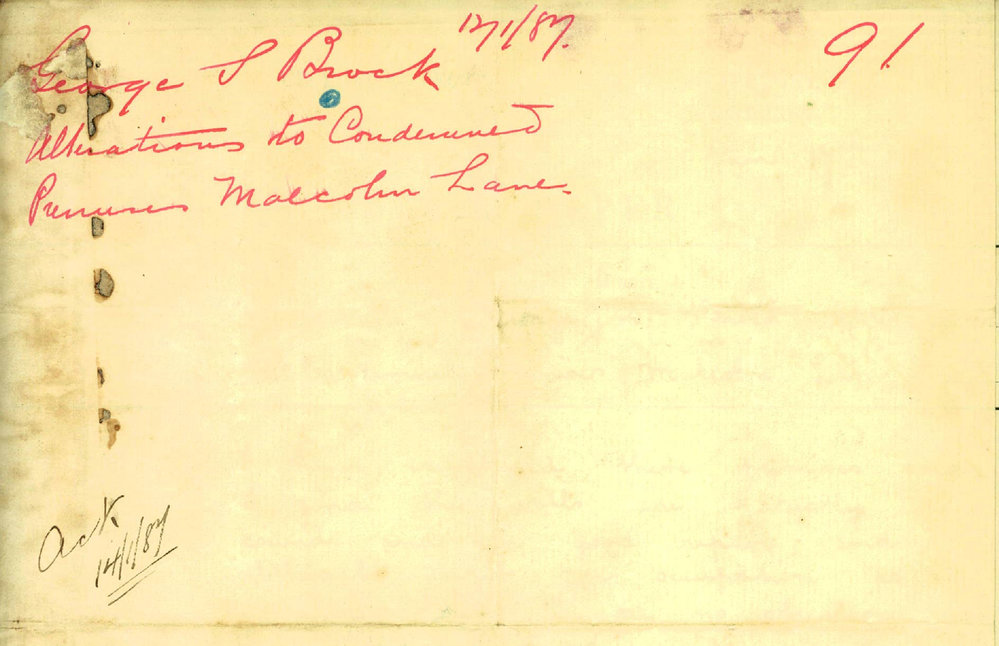 12/1/87.
91
George S Brock
Alterations to Condemned
Premises Malcolm Lane.
Ack
14/1/87